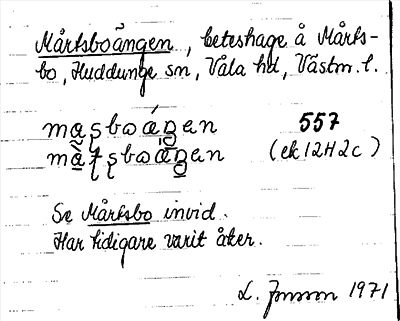 Mårtsboängen, beteshage å Mårts-
bo, Huddunge sn, Våla hd, Västm. l.
557
(ek 12H2c)
Se Mårtsbo invid.
Har tidigare varit åker.
L. Jonsson 1971